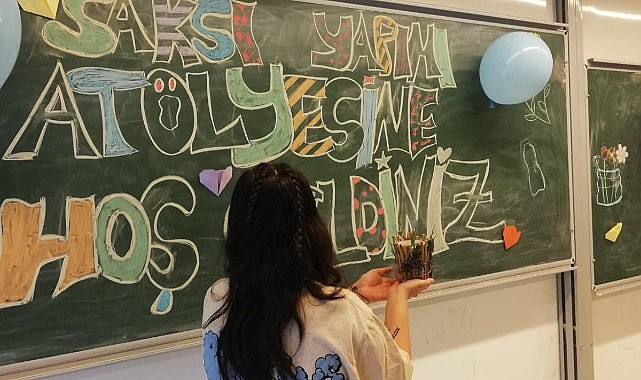 SAKSI YAPIMI
ATÖLYESİNE
HOŞ GELDİNİZ